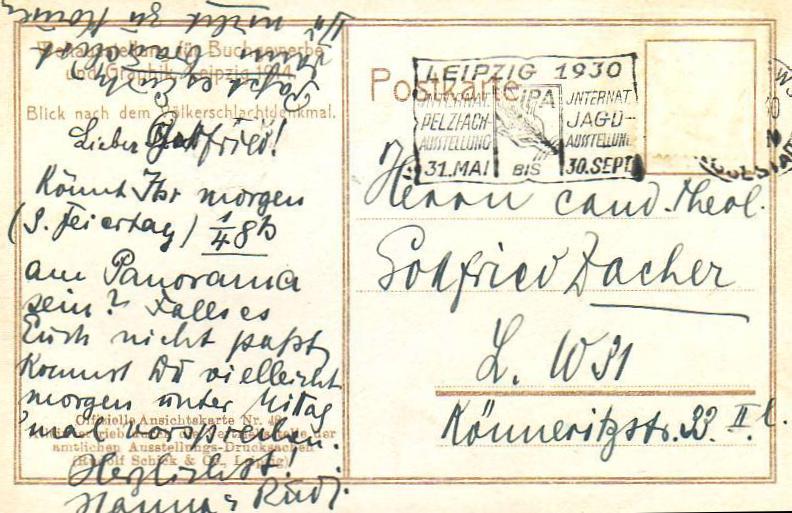 Weltausstellung für Buchgewerbe
und Graphik, Leipzig 1914
Blick nach dem Völkerschlachtdenkmal.
Lieber Gottfried!
Könnt Ihr morgen
(3. Feiertag) 1/4 8 h
am Panorama
sein? Falls es
Euch nicht paßt,
kommst Du vielleicht
morgen unter Mittag
mal vorsprechen.
Herzlichst!
Hanna & Rudi.
Offizielle Ansichtskarte Nr.
amtlichen Ausstellungs-Drucksachen
(Rudolf Schick & Co., Leipzig)
Postkarte
LEIPZIG 1930
INTERNAT. PELZFACH-AUSSTELLUNG
IPA
INTERNAT. JAGD-AUSSTELLUNG
31. MAI BIS 30. SEPT.
Herrn cand. theol.
Gottfried Dacher
L. W 31
Könneritzstr. 33 II l.